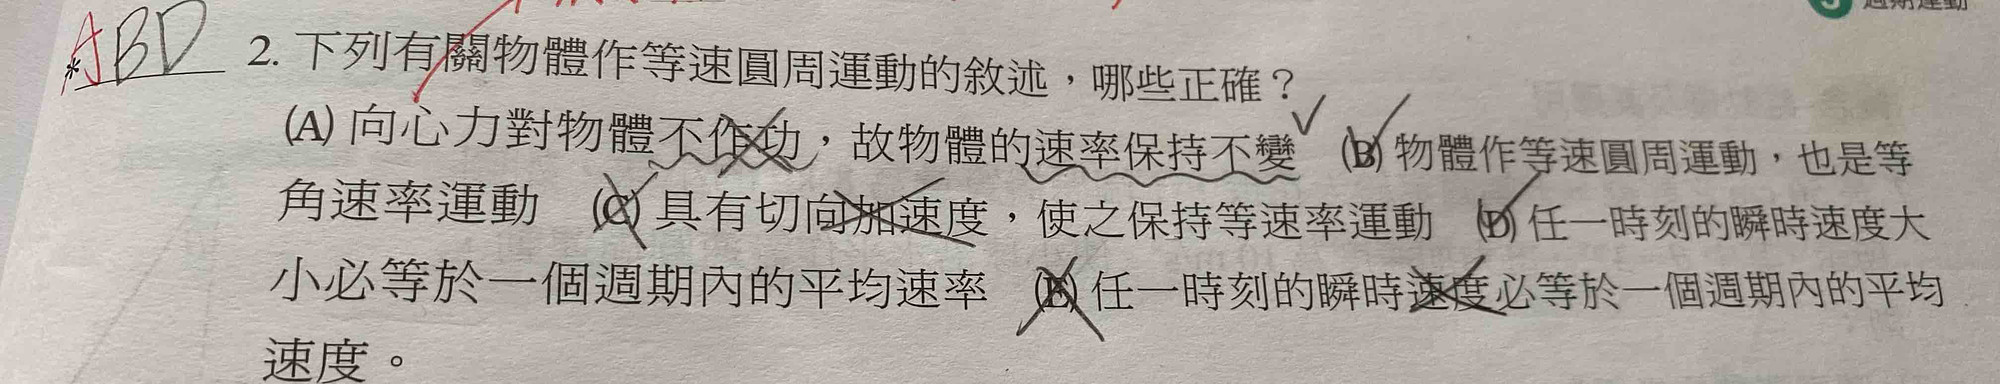 週期運動
ABD
* 2. 下列有關物體作等速圓周運動的敘述，哪些正確？
(A) 向心力對物體不作功，故物體的速率保持不變 (B) 物體作等速圓周運動，也是等
角速率運動 (C) 具有切向加速度，使之保持等速率運動 (D) 任一時刻的瞬時速度大
小必等於一個週期內的平均速率 (E) 任一時刻的瞬時速度必等於一個週期內的平均
速度。